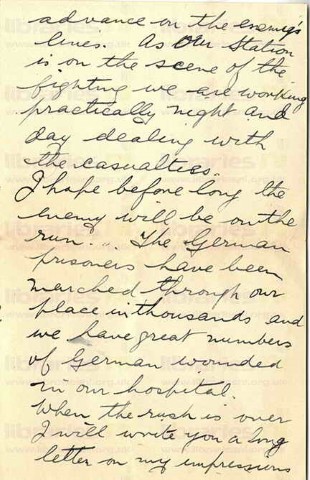 advance on the enemy's
lines. As our Station
is on the scene of the
fighting we are working
practically night and
day dealing with
the casualties.
I hope before long the
enemy will be on the
run... The German
prisoners have been
marched through our
place in thousands and
we have great numbers
of German wounded
in our hospital.
When the rush is over
I will write you a long
letter on my impressions